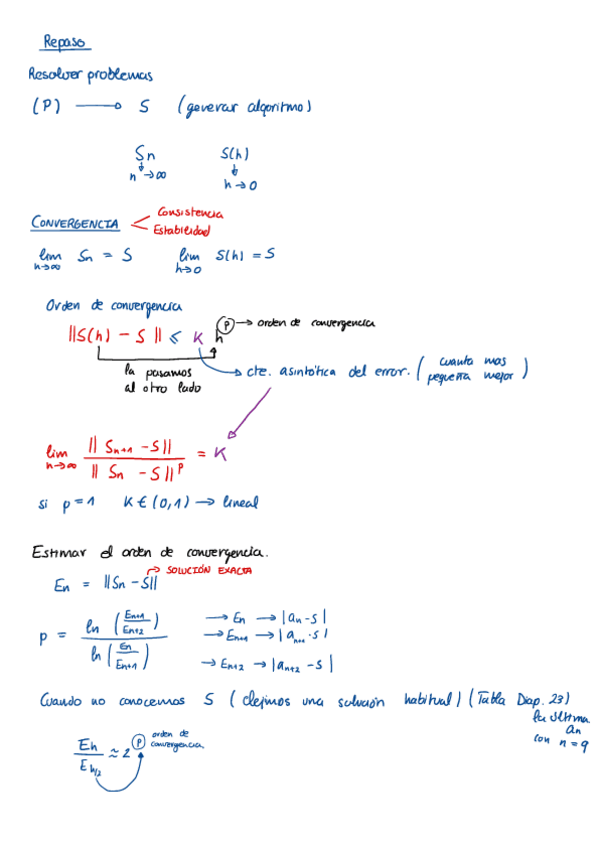 Repaso
Resolver problemas
(P) → S (generar algoritmo)
Sn S(h)
n→∞ h→0
CONVERGENCIA
Consistencia
Estabilidad
lim n→∞ Sn = S lim h→0 S(h) = S
Orden de convergencia
||S(h) - S || ≤ K h^p → orden de convergencia
la pasamos al otro lado
cte. asintótica del error. (cuanta mas pequeña mejor)
lim n→∞ || Sn+1 - S|| / || Sn - S||^p = K
si p = 1 K ∈ (0,1) → lineal
Estimar el orden de convergencia.
→ SOLUCIÓN EXACTA
En = ||Sn - S||
p = ln (En+1/En+2) / ln (En/En+1)
→ En → |an - s|
→ En+1 → |an+1 - s|
→ En+2 → |an+2 - s|
Cuando no conocemos S (elejimos una solución habitual) (Tabla Diap. 23)
la ultima
an
con n = 9
Eh / Eh/2 ≈ 2^p orden de convergencia.